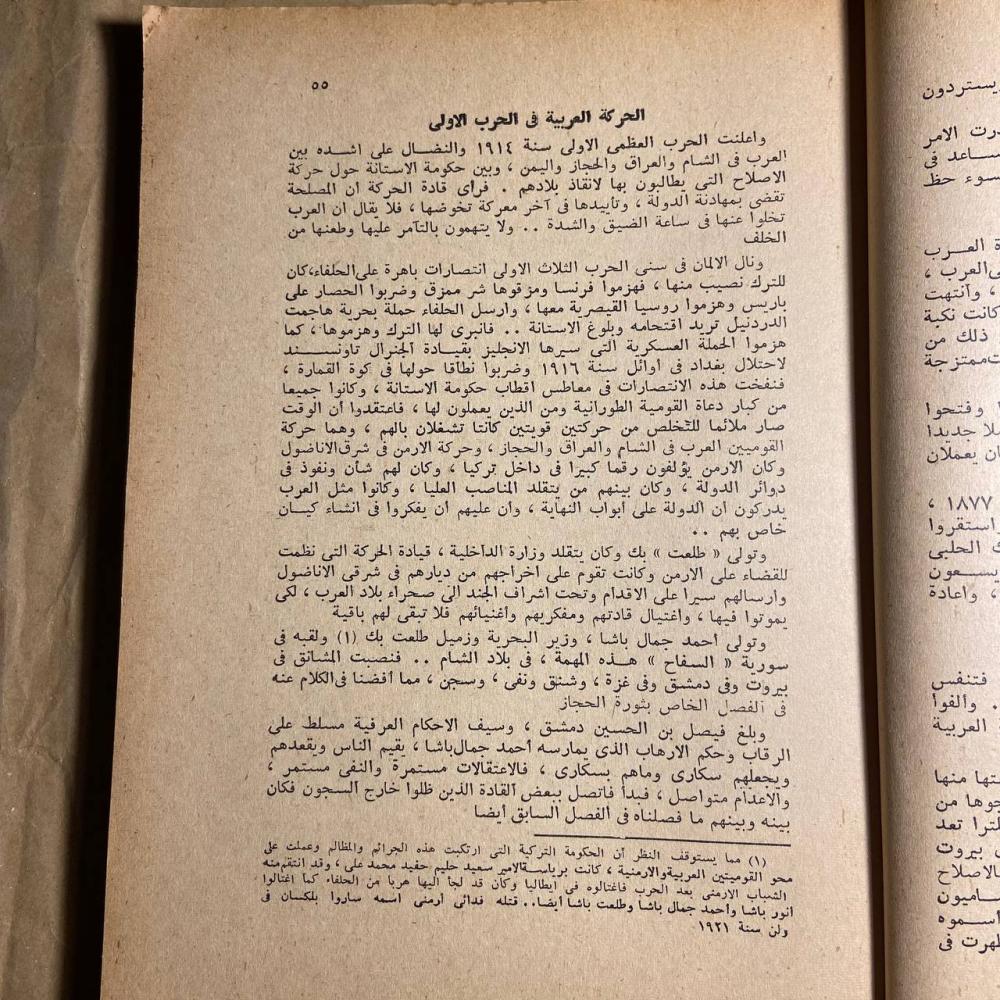 ٥٥
الحركة العربية فى الحرب الاولى
واعلنت الحرب العظمى الاولى سنة ١٩١٤ والنضال على اشده بين
العرب فى الشام والعراق والحجاز واليمن ، وبين حكومة الاستانة حول حركة
الاصلاح التى يطالبون بها لانقاذ بلادهم . فرأى قادة الحركة ان المصلحة
تقضى بمهادنة الدولة ، وتأييدها فى آخر معركة تخوضها ، فلا يقال ان العرب
تخلوا عنها فى ساعة الضيق والشدة .. ولا يتهمون بالتآمر عليها وطعنها من
الخلف
ونال الالمان فى سنى الحرب الثلاث الاولى انتصارات باهرة على الحلفاء، كان
للترك نصيب منها ، فهزموا فرنسا ومزقوها شر ممزق وضربوا الحصار على
باريس وهزموا روسيا القيصرية معها ، وارسل الحلفاء حملة بحرية هاجمت
الدردنيل تريد اقتحامه وبلوغ الاستانة .. فانبرى لها الترك وهزموها ، كما
هزموا الحملة العسكرية التى سيرها الانجليز بقيادة الجنرال تاونسند
لاحتلال بغداد فى أوائل سنة ١٩١٦ وضربوا نطاقا حولها فى كوة القمارة ،
فنفخت هذه الانتصارات فى معاطس اقطاب حكومة الاستانة ، وكانوا جميعا
من كبار دعاة القومية الطورانية ومن الذين يعملون لها ، فاعتقدوا أن الوقت
صار ملائما للتخلص من حركتين قويتين كانتا تشغلان بالهم ، وهما حركة
القوميين العرب فى الشام والعراق والحجاز ، وحركة الارمن فى شرق الاناضول
وكان الارمن يؤلفون رقما كبيرا فى داخل تركيا ، وكان لهم شأن ونفوذ فى
دوائر الدولة ، وكان بينهم من يتقلد المناصب العليا ، وكانوا مثل العرب
يدركون ان الدولة على أبواب النهاية ، وان عليهم أن يفكروا فى انشاء كيان
خاص بهم ..
وتولى « طلعت » بك وكان يتقلد وزارة الداخلية ، قيادة الحركة التى نظمت
للقضاء على الارمن وكانت تقوم على اخراجهم من ديارهم فى شرقى الاناضول
وارسالهم سيرا على الاقدام وتحت اشراف الجند الى صحراء بلاد العرب ، لكى
يموتوا فيها ، واغتيال قادتهم ومفكريهم وأغنيائهم فلا تبقى لهم باقية
وتولى احمد جمال باشا ، وزير البحرية وزميل طلعت بك (١) ولقبه فى
سورية « السفاح » هذه المهمة ، فى بلاد الشام .. فنصبت المشانق فى
بيروت وفى دمشق وفى غزة ، وشنق ونفى ، وسجن ، مما أفضنا فى الكلام عنه
فى الفصل الخاص بثورة الحجاز
وبلغ فيصل بن الحسين دمشق ، وسيف الاحكام العرفية مسلط على
الرقاب وحكم الارهاب الذى يمارسه أحمد جمال باشا ، يقيم الناس ويقعدهم
ويجعلهم سكارى وماهم بسكارى ، فالاعتقالات مستمرة والنفى مستمر ،
والاعدام متواصل ، فبدأ فاتصل ببعض القادة الذين ظلوا خارج السجون فكان
بينه وبينهم ما فصلناه فى الفصل السابق أيضا
(١) مما يستوقف النظر أن الحكومة التركية التى ارتكبت هذه الجرائم والمظالم وعملت على
محو القوميتين العربية والارمنية ، كانت برياسة الامير سعيد حليم حفيد محمد على ، وقد انتقم منه
الشباب الارمنى بعد الحرب فاغتالوه فى ايطاليا وكان قد لجأ اليها هربا من الحلفاء كما اغتالوا
انور باشا وأحمد جمال باشا وطلعت باشا أيضا.. قتله فدائى أرمنى اسمه ساروا بلكسان فى
ولن سنة ١٩٢١
يستردون
الامر
ساعد فى
سوء حظ
العرب
العرب ،
، وانتهت
كانت نكبة
ذلك من
ممتزجة
وفتحوا
جديدا
يعملان
١٨٧٧ ،
واستقروا
الحلبى
يسعون
، واعادة
فتنفس
. وألفوا
العربية
منها
من
تعد
بيروت
أسموه
فى